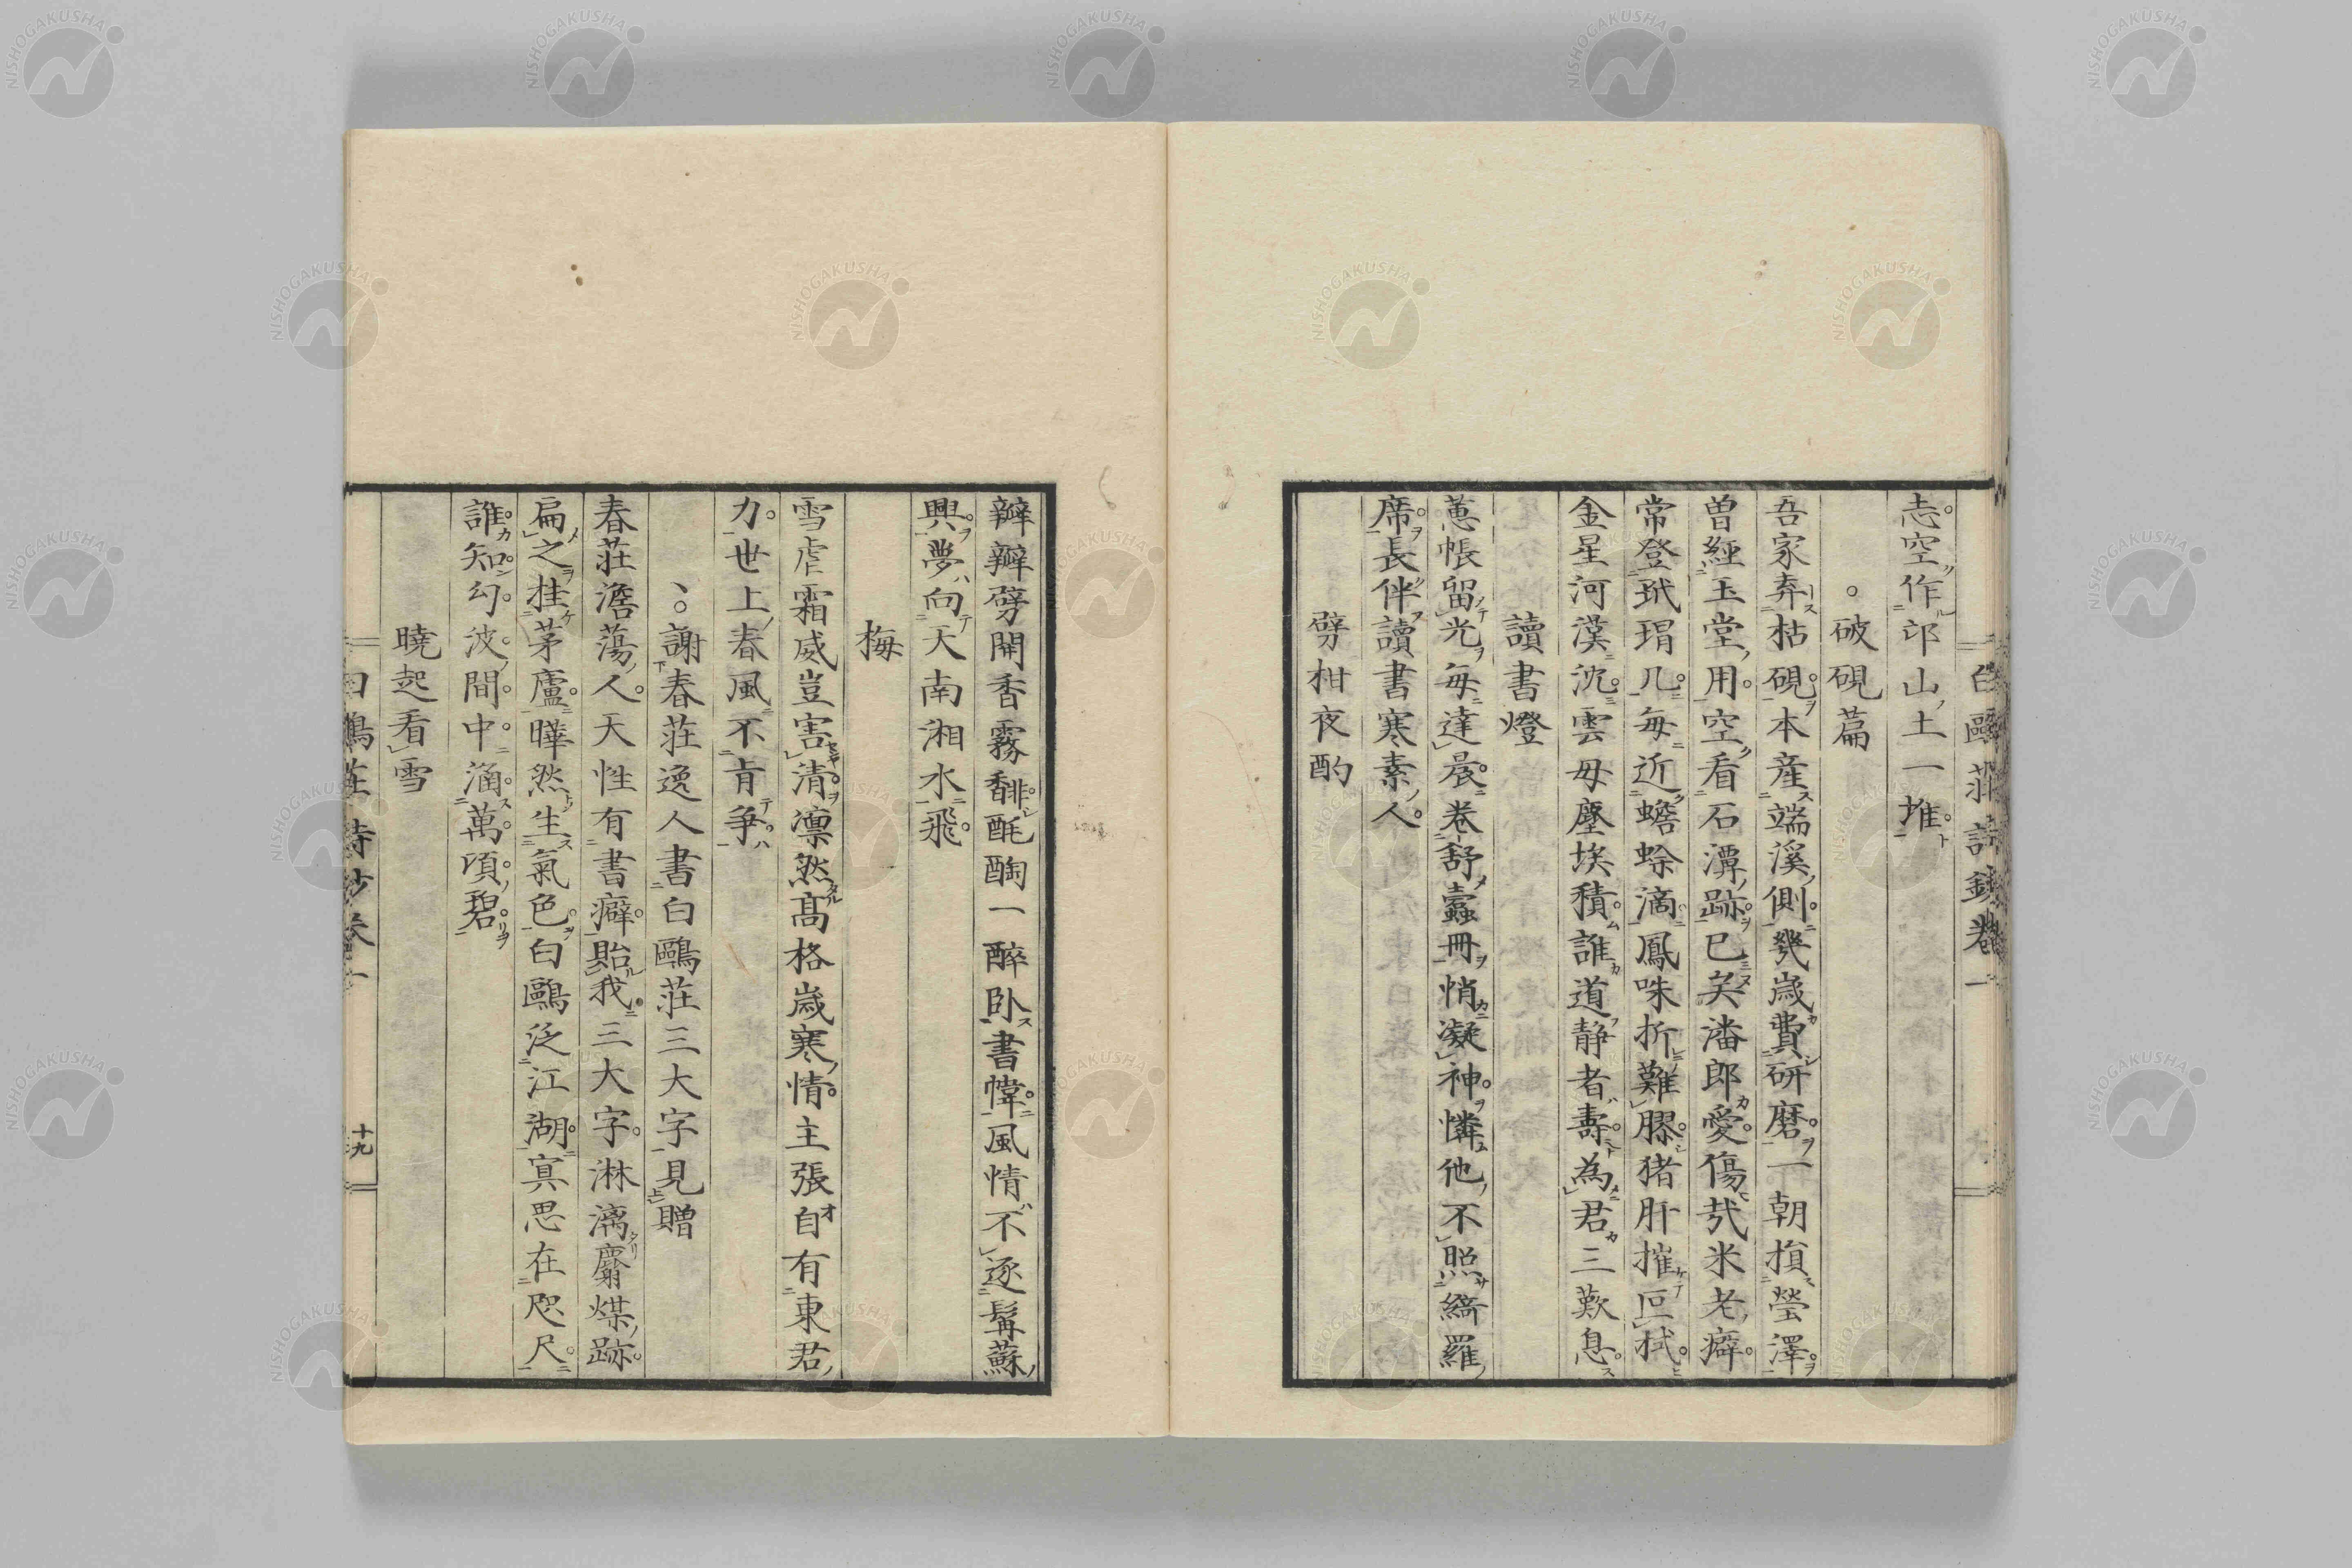 白鷗莊詩鈔卷一
志空作邙山土一堆
破硯篇
吾家弆枯硯本産端溪側幾歲費研磨一朝損瑩澤
曽經玉堂用空看石潭跡已矣潘郎愛傷哉米老癖
常登玳瑁几毎近蟾蜍滴鳳咮折難膠猪肝摧叵拭
金星河漢沈雲母塵埃積誰道静者壽為君三歎息
讀書燈
蕙帳留光毎達晨卷舒蠹冊悄凝神憐他不照綺羅
席長伴讀書寒素人
劈柑夜酌
瓣瓣劈開香霧馡酕醄一醉卧書幃風情不逐髯蘇
興夢向天南湘水飛
梅
雪虐霜威豈害清凛然髙格歲寒情主張自有東君
力世上春風不肯爭
謝春莊逸人書白鷗莊三大字見贈
春莊澹蕩人天性有書癖貽我三大字淋漓麝煤跡
扁之挂茅廬曄然生氣色白鷗泛江湖寘思在咫尺
誰知勾波間中涵萬頃碧
曉起看雪
白鷗莊詩鈔卷一
十九